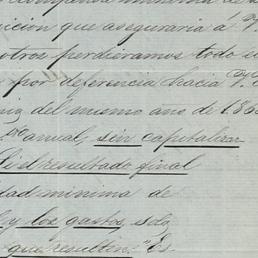 icion que aseguraria á
otros perdieramos todo
por deferencia hacia
del mismo año de 186
anual, sin capitalizar
el resultado final
dad minima de
y los gastos, solo
que resulten." Es